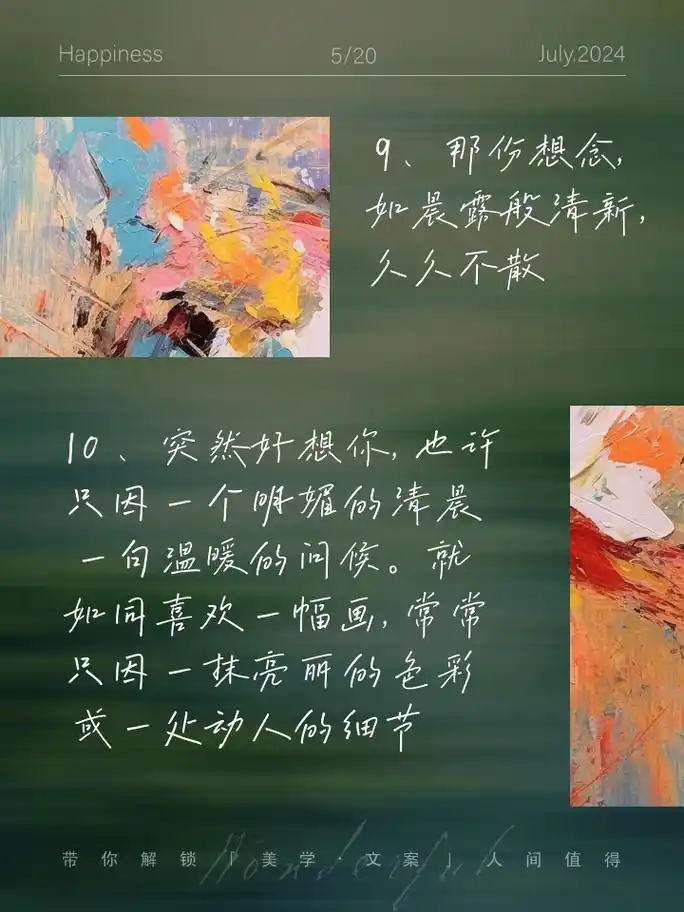 Happiness 5/20 July.2024
9、那份想念,
如晨露般清新,
久久不散
10、突然好想你,也许
只因一个明媚的清晨
一句温暖的问候。就
如同喜欢一幅画,常常
只因一抹亮丽的色彩
或一处动人的细节
Wonderful
带你解锁「美学·文案」人间值得